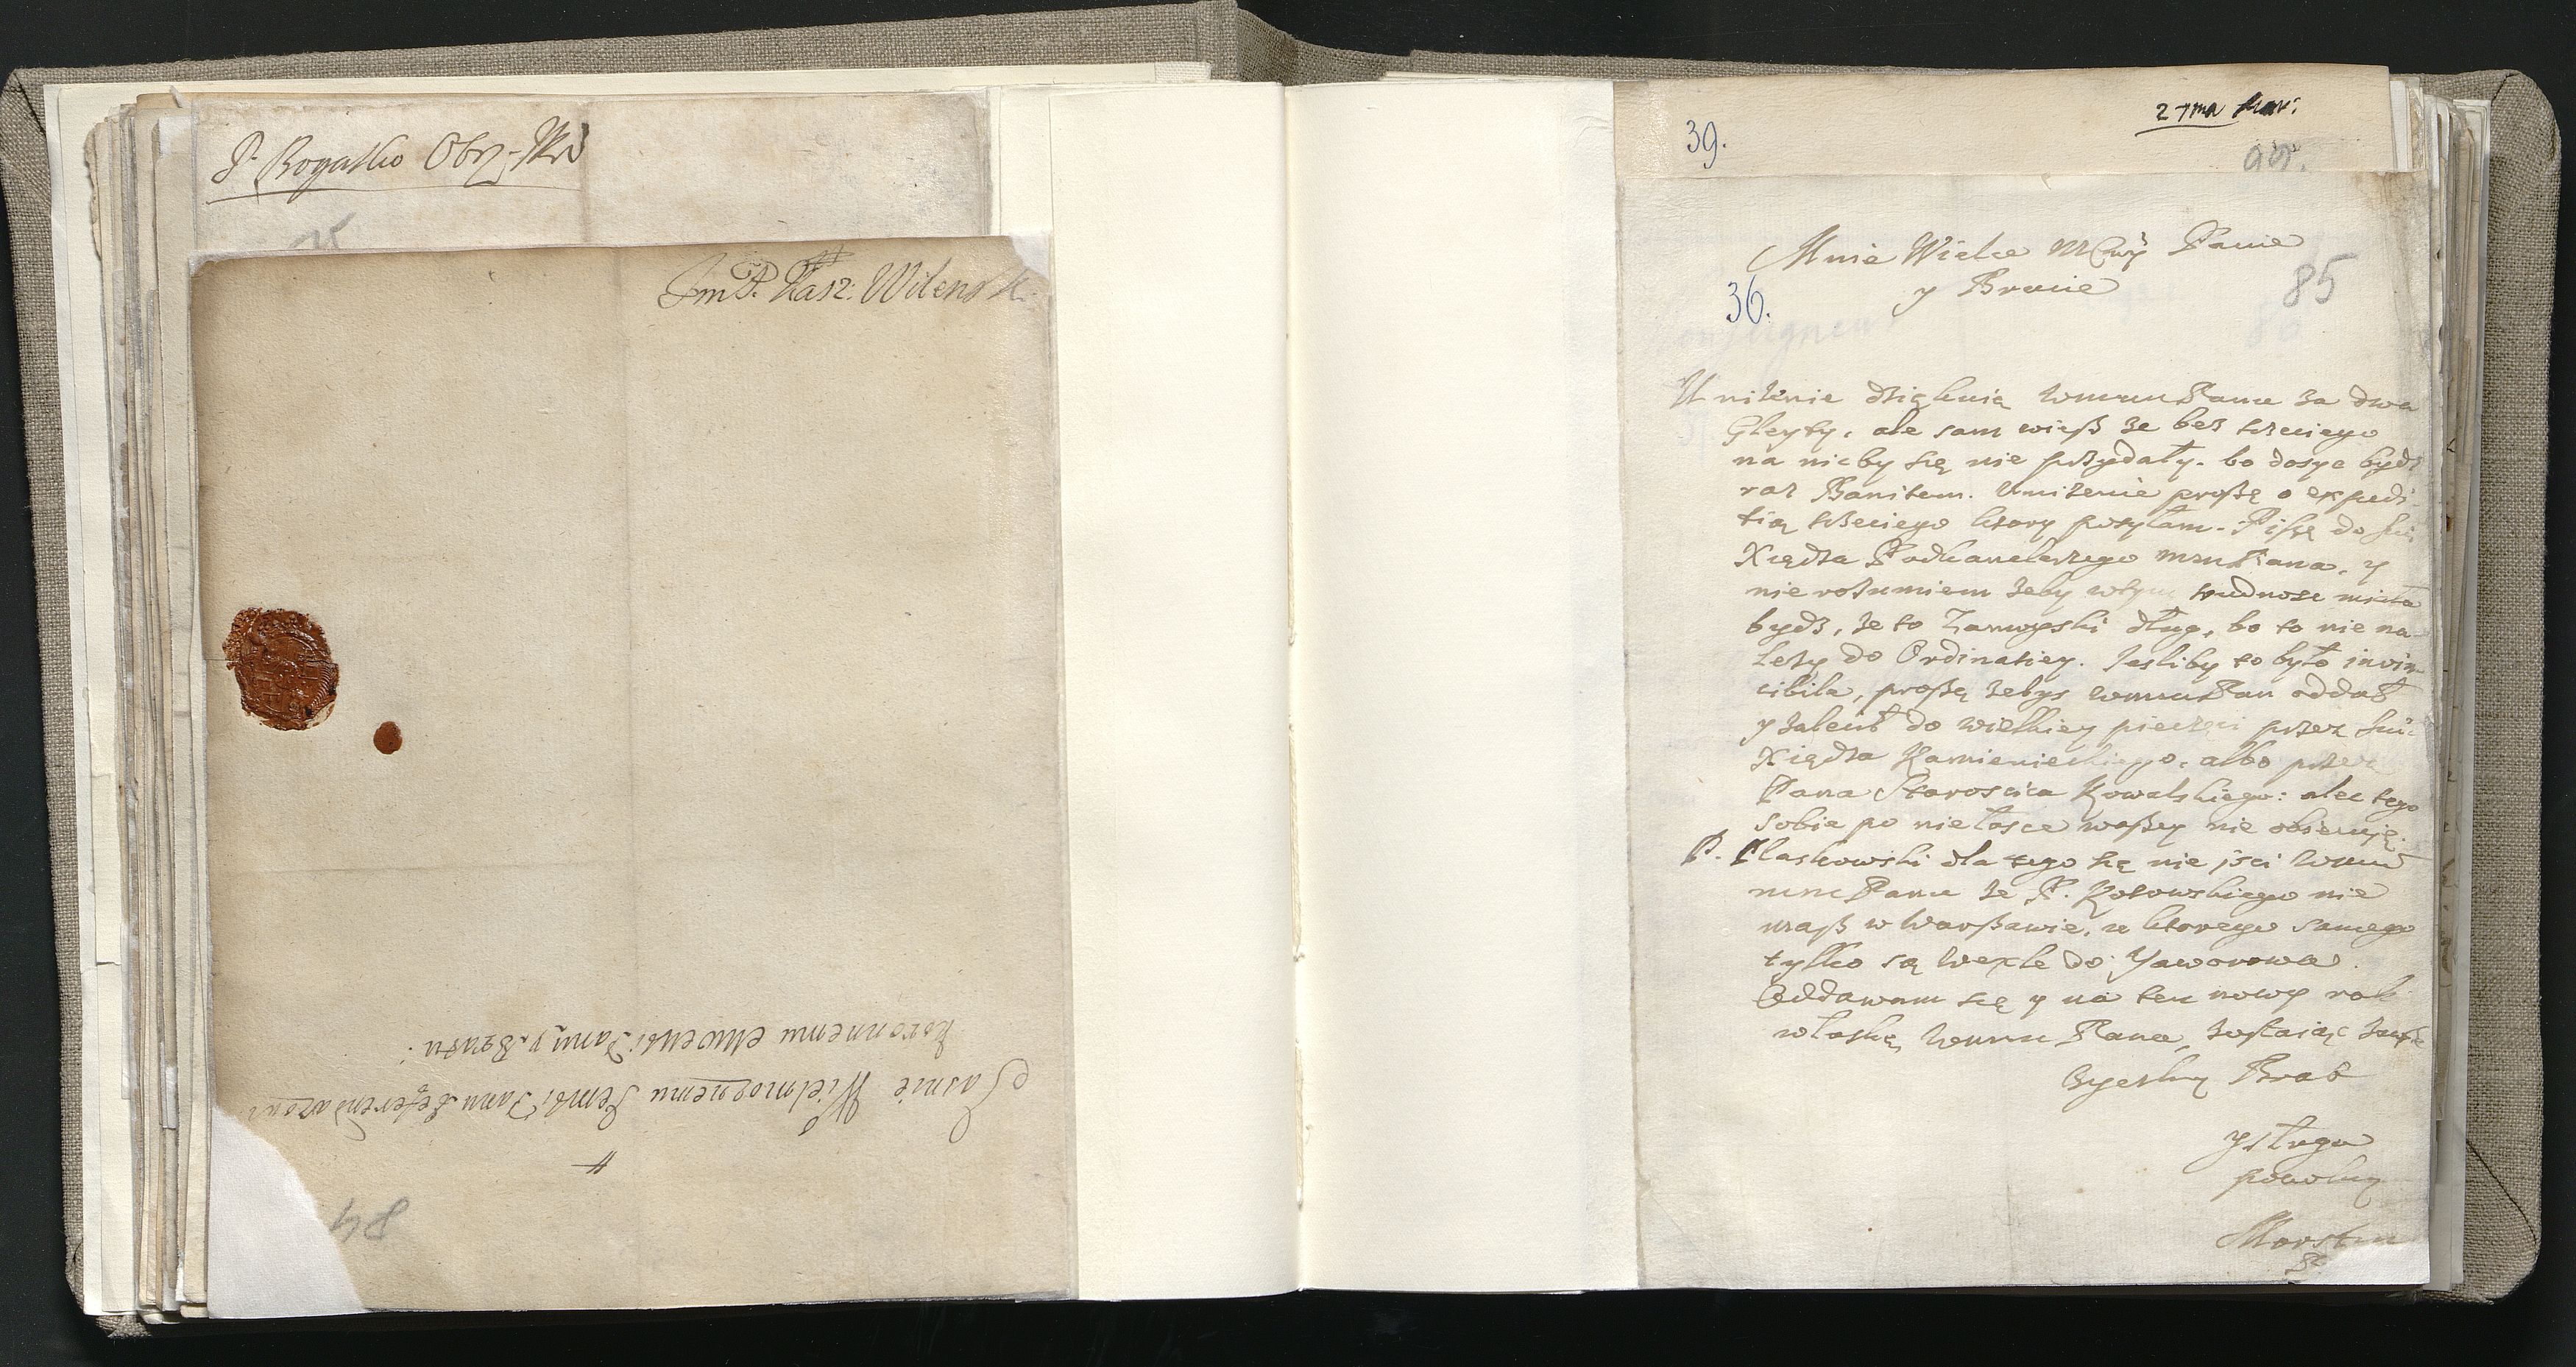 P. Rogatko Obrz-Wri
Jm P. Kasz: Wilensk.
Jasnie Wielmoznemu Jemsci Panu Referendarzowi
Koronnemu Mmemsci Panu y Bratu:
84
39.
2 7ma Mar:
Mnie Wielce MCwy Panie
y Bracie
36.
85
Unizenie dziękuię wmmmPanu za dwa
Gleyty, ale sam wieß ze bez trzeciego
na nicby się nie przydały. bo dosyc bydz
raz Banitem. Unizenie proßę o expedi-
tią trzeciego ktory posyłam. Pißę do Jmci
Xiędza Podkanclerzego mmPana, y
nie rozumiem zeby wtym trudnosc miała
bydz, ze to Zamoyski dług, bo to nie na-
lezy do Ordinatiey. Jesliby to było invin-
cibile, proßę zebys wmmmPan oddał
y zalecił do wielkiey pieczęci przez Jmci
Xiędza Kamienieckiego, albo przez
Pana Staroscica Kowalskiego: alec tego
sobie po niełasce waßey nie obiecuię.
P. Plaskowski dla tego się nie isci
mmPanu ze P. Kotowskiego nie
maß w Warßawie, u ktorego samego
tylko są wexle do Yaworowa.
Oddawam się y na ten nowy rok
właskę wmmm Pana, zostaiąc zawße
Zyczliwy Brat
y sługa
powolny
Morstin